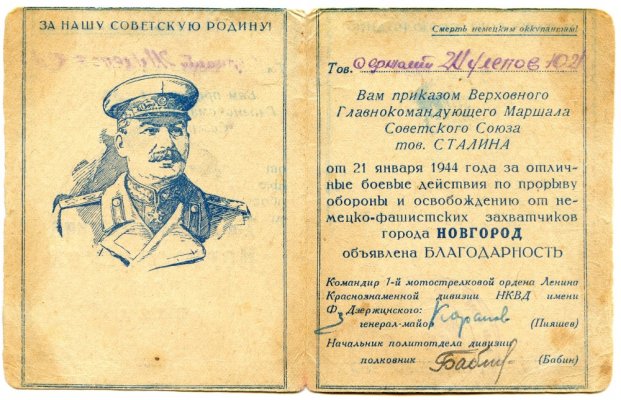 ЗА НАШУ СОВЕТСКУЮ РОДИНУ!
Смерть немецким оккупантам!
Тов. Шулепов
Вам приказом Верховного
Главнокомандующего Маршала
Советского Союза
тов. СТАЛИНА
от 21 января 1944 года за отлич-
ные боевые действия по прорыву
обороны и освобождению от не-
мецко-фашистских захватчиков
города НОВГОРОД
объявлена БЛАГОДАРНОСТЬ
Командир 1-й мотострелковой ордена Ленина
Краснознаменной дивизии НКВД имени
Ф. Дзержинского:
генерал-майор (Пияшев)
Начальник политотдела дивизии
полковник (Бабин)